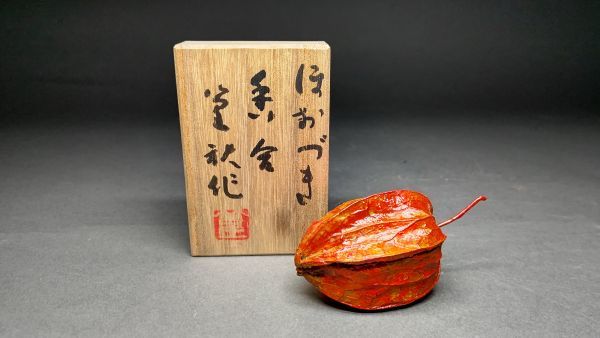 ほおづき
香合
秋作